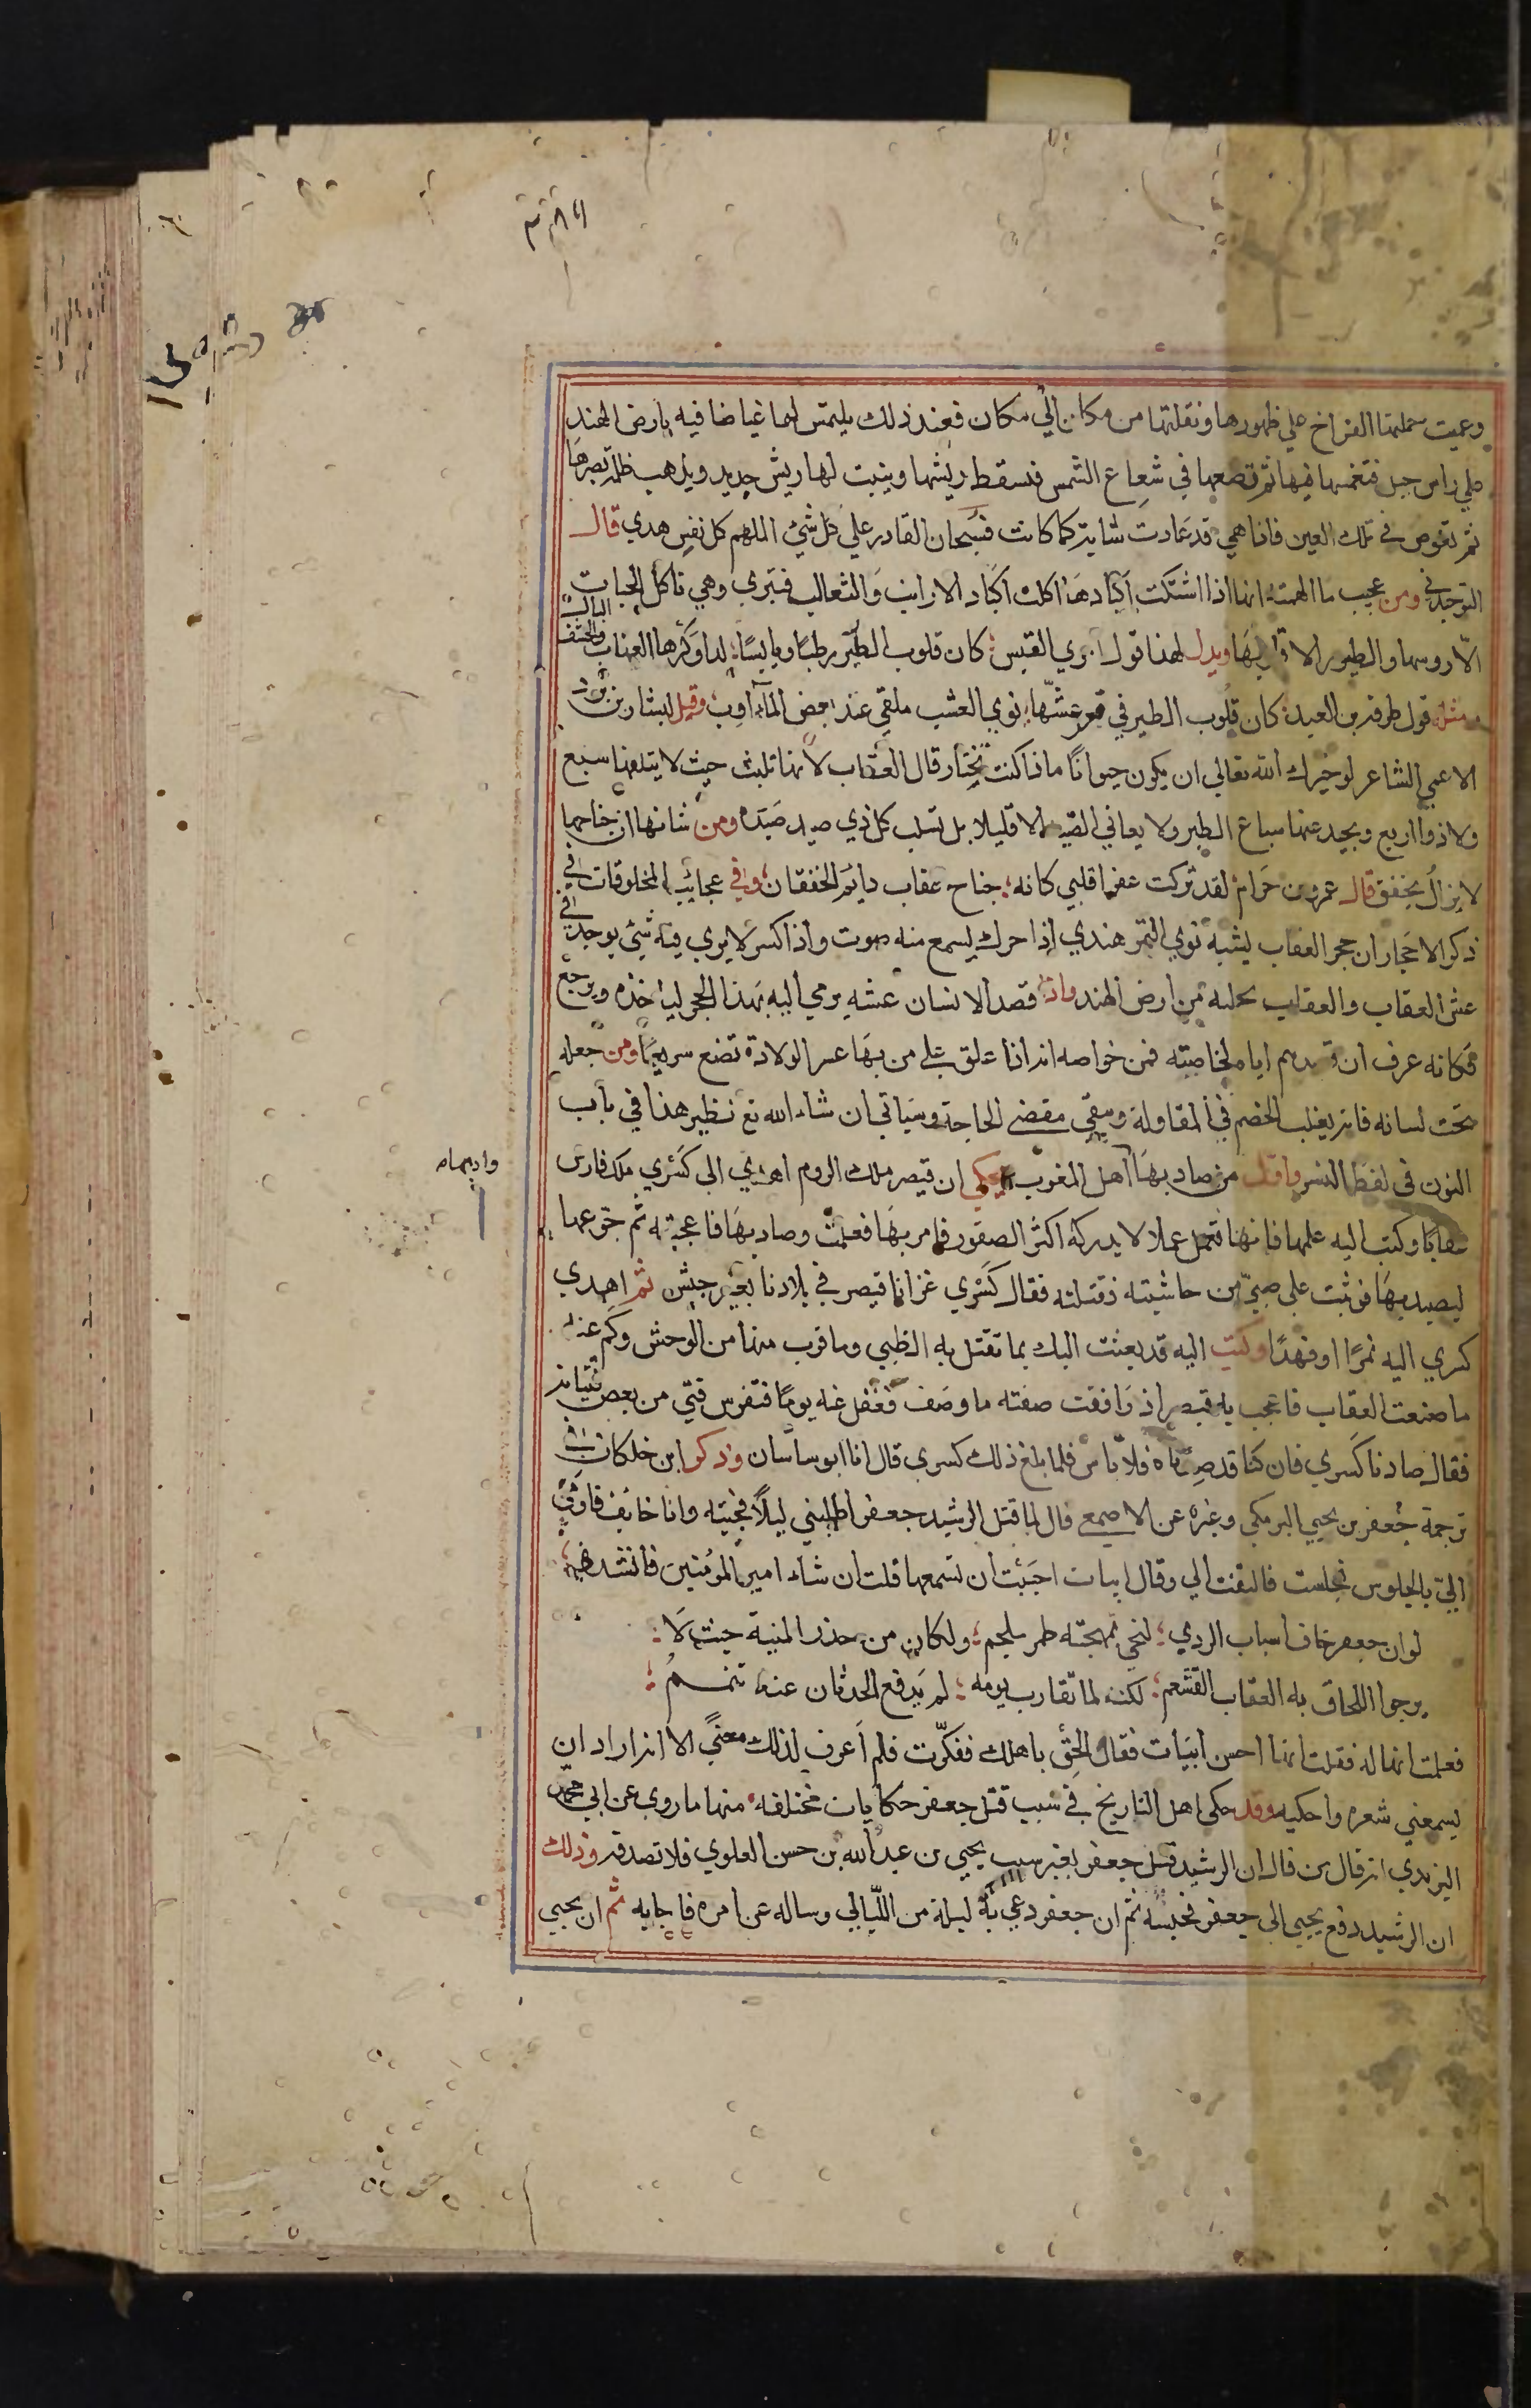 وعميت حملتها الفراخ علي ظهورها ونقلتها من مكان الي مكان فعند ذلك يلتمس لها غياضا فيه بارض الهند
علي راس جبل فتغمسها فيها ثم تضعها في شعاع الشمس فتسقط ريشها وينبت لها ريش جديد ويذهب ظلمة بصرها
ثم تغوص في تلك العين فاذا هي قد عادت شابة كما كانت فسبحان القادر علي كل شئ الملهم كل نفس هدي قال
التوحيدي ومن عجيب ما الهمته انها اذا اشتكت اكبادها اكلت اكباد الارانب والثعالب فتبري وهي تاكل الحيات
الا روسها والطيور الا قلوبها ويدل لهذا قول امري القيس كان قلوب الطير رطبا ويابسا لدا وكرها العناب والحشف البالي
ومثله قول طرفة بن العبد كان قلوب الطير في قعر عشها نوي العشب ملقي عند بعض المآدب وقيل لبشار بن برد
الاعمي الشاعر لو خيرك الله تعالي ان يكون حيوانا ماذا كنت تختار قال العقاب لانها تلبث حيث لا يبلغها سبع
ولا ذوا اربع ويحيد عنها سباع الطير ولا يعاني الصيد الا قليلا بل تسلب كل ذي صيد صيده ومن شانها ان جناحها
لا يزال يخفق قال عمرو بن حزام لقد تركت عفرا قلبي كانه جناح عقاب دايم الخفقان وفي عجائب المخلوقات في
ذكر الاحجار ان حجر العقاب يشبه نوي التمر هندي اذا حرك يسمع منه صوت واذا كسر لا يري فيه شئ يوجد في
عش العقاب والعقاب يحلبه من ارض الهند واذا قصد الانسان عشه يرمي اليه بهذا الحجر لياخذه ويرجع
فكانه عرف ان قصدهم اياه لخاصيته فمن خواصه انه اذا علق علي من بها عسر الولادة تضع سريعا ومن جعله
تحت لسانه فانه يغلب الخصم في المقاولة ويبقي مقضي الحاجة وسياتي ان شاء الله تع نظير هذا في باب
النون في لفظ النسر واول من صاد بها اهل المغرب يحكي ان قيصر ملك الروم اهدي الي كسري ملك فارس
عقابا وكتب اليه علمها فانها تعمل عملا لا يدركه اكثر الصقور فامر بها فعلمت وصاد بها فاعجبته ثم جوعها
ليصيد بها فوثبت علي صبي من حاشيته فقتلته فقال كسري غزانا قيصر في بلادنا بغير جيش ثم اهدي
كسري اليه نمرا او فهدا وكتب اليه قد بعثت اليك بما تقتل به الظبي وما قرب منها من الوحش وكتم عنه
ما صنعت العقاب فاعجب به قيصر اذ وافقت صفته ما وصف فغفل عنه يوما فتفرس فتي من بعض فتيانه
فقال صادنا كسري فان كنا قد صدناه فلا باس فلما بلغ ذلك كسري قال انا ابو ساسان وذكر ابن خلكان في
ترجمة جعفر بن يحيي البرمكي وغيره عن الاصمعي قال لما قتل الرشيد جعفر اطلبني ليلا فجيته وانا خايف فاومي
الي بالجلوس فجلست فالتفت الي وقال ابيات احببت ان تسمعها قلت ان شاء امير المؤمنين فانشد
لو ان جعفر خاف اسباب الردي لنجي بمهجته طمر ملجم ولكان من حذر المنية حيث لا
يرجوا اللحاق به العقاب القشعم لكنه لما تقارب يومه لم يدفع الحدثان عنه
فعلمت انها له فقلت انها احسن ابيات فقال الحق باهلك ففكرت فلم اعرف لذلك معني الا انه اراد ان
يسمعني شعره واحكيه وقد حكي اهل التاريخ في سبب قتل جعفر حكايات مختلفه منها ما روي عن ابي محمد
اليزيدي انه قال من قال ان الرشيد قتل جعفر بغير سبب يحيي بن عبد الله بن حسن العلوي فلا تصدقه وذلك
ان الرشيد دفع يحيي الي جعفر فحبسه ثم ان جعفر دعي به ليلة من الليالي وساله عن امره فاجابه ثم ان يحيي